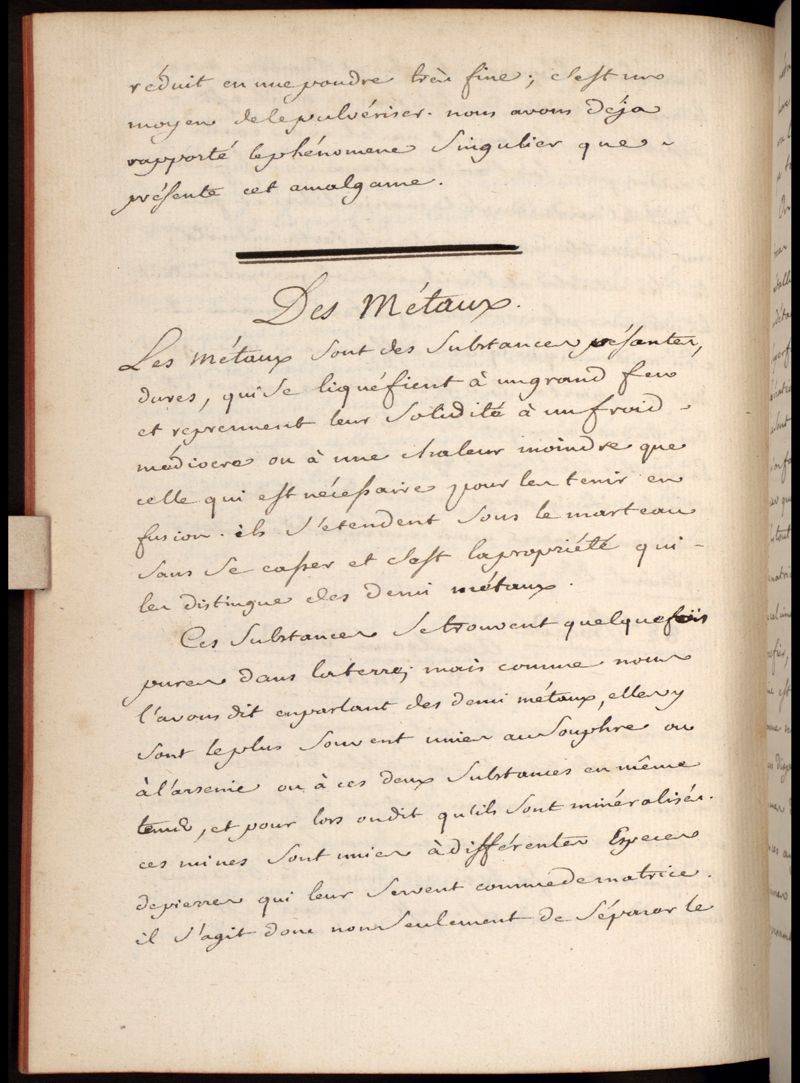 réduit en une poudre très fine; c'est un
moyen de le pulvériser. nous avons déja
rapporté le phénomene singulier que
présente cet amalgame.
Des Métaux.
Les Métaux sont des substances pésantes,
dures, qui se liquéfient à un grand feu
et reprennent leur solidité à un froid
médiocre ou à une chaleur moindre que
celle qui est nécessaire pour les tenir en
fusion. ils s'etendent sous le marteau
sans se casser et c'est la propriété qui
les distingue des demi métaux.
Ces substances se trouvent quelquefois
pures dans la terre; mais comme nous
l'avons dit en parlant des demi métaux, elles y
sont le plus souvent unies au souphre ou
à l'arsenic ou à ces deux substances en même
tems, et pour lors on dit qu'ils sont minéralisés.
ces mines sont unies à différentes Especes
de pierres qui leur servent comme de matrice.
il s'agit donc non seulement de séparer le